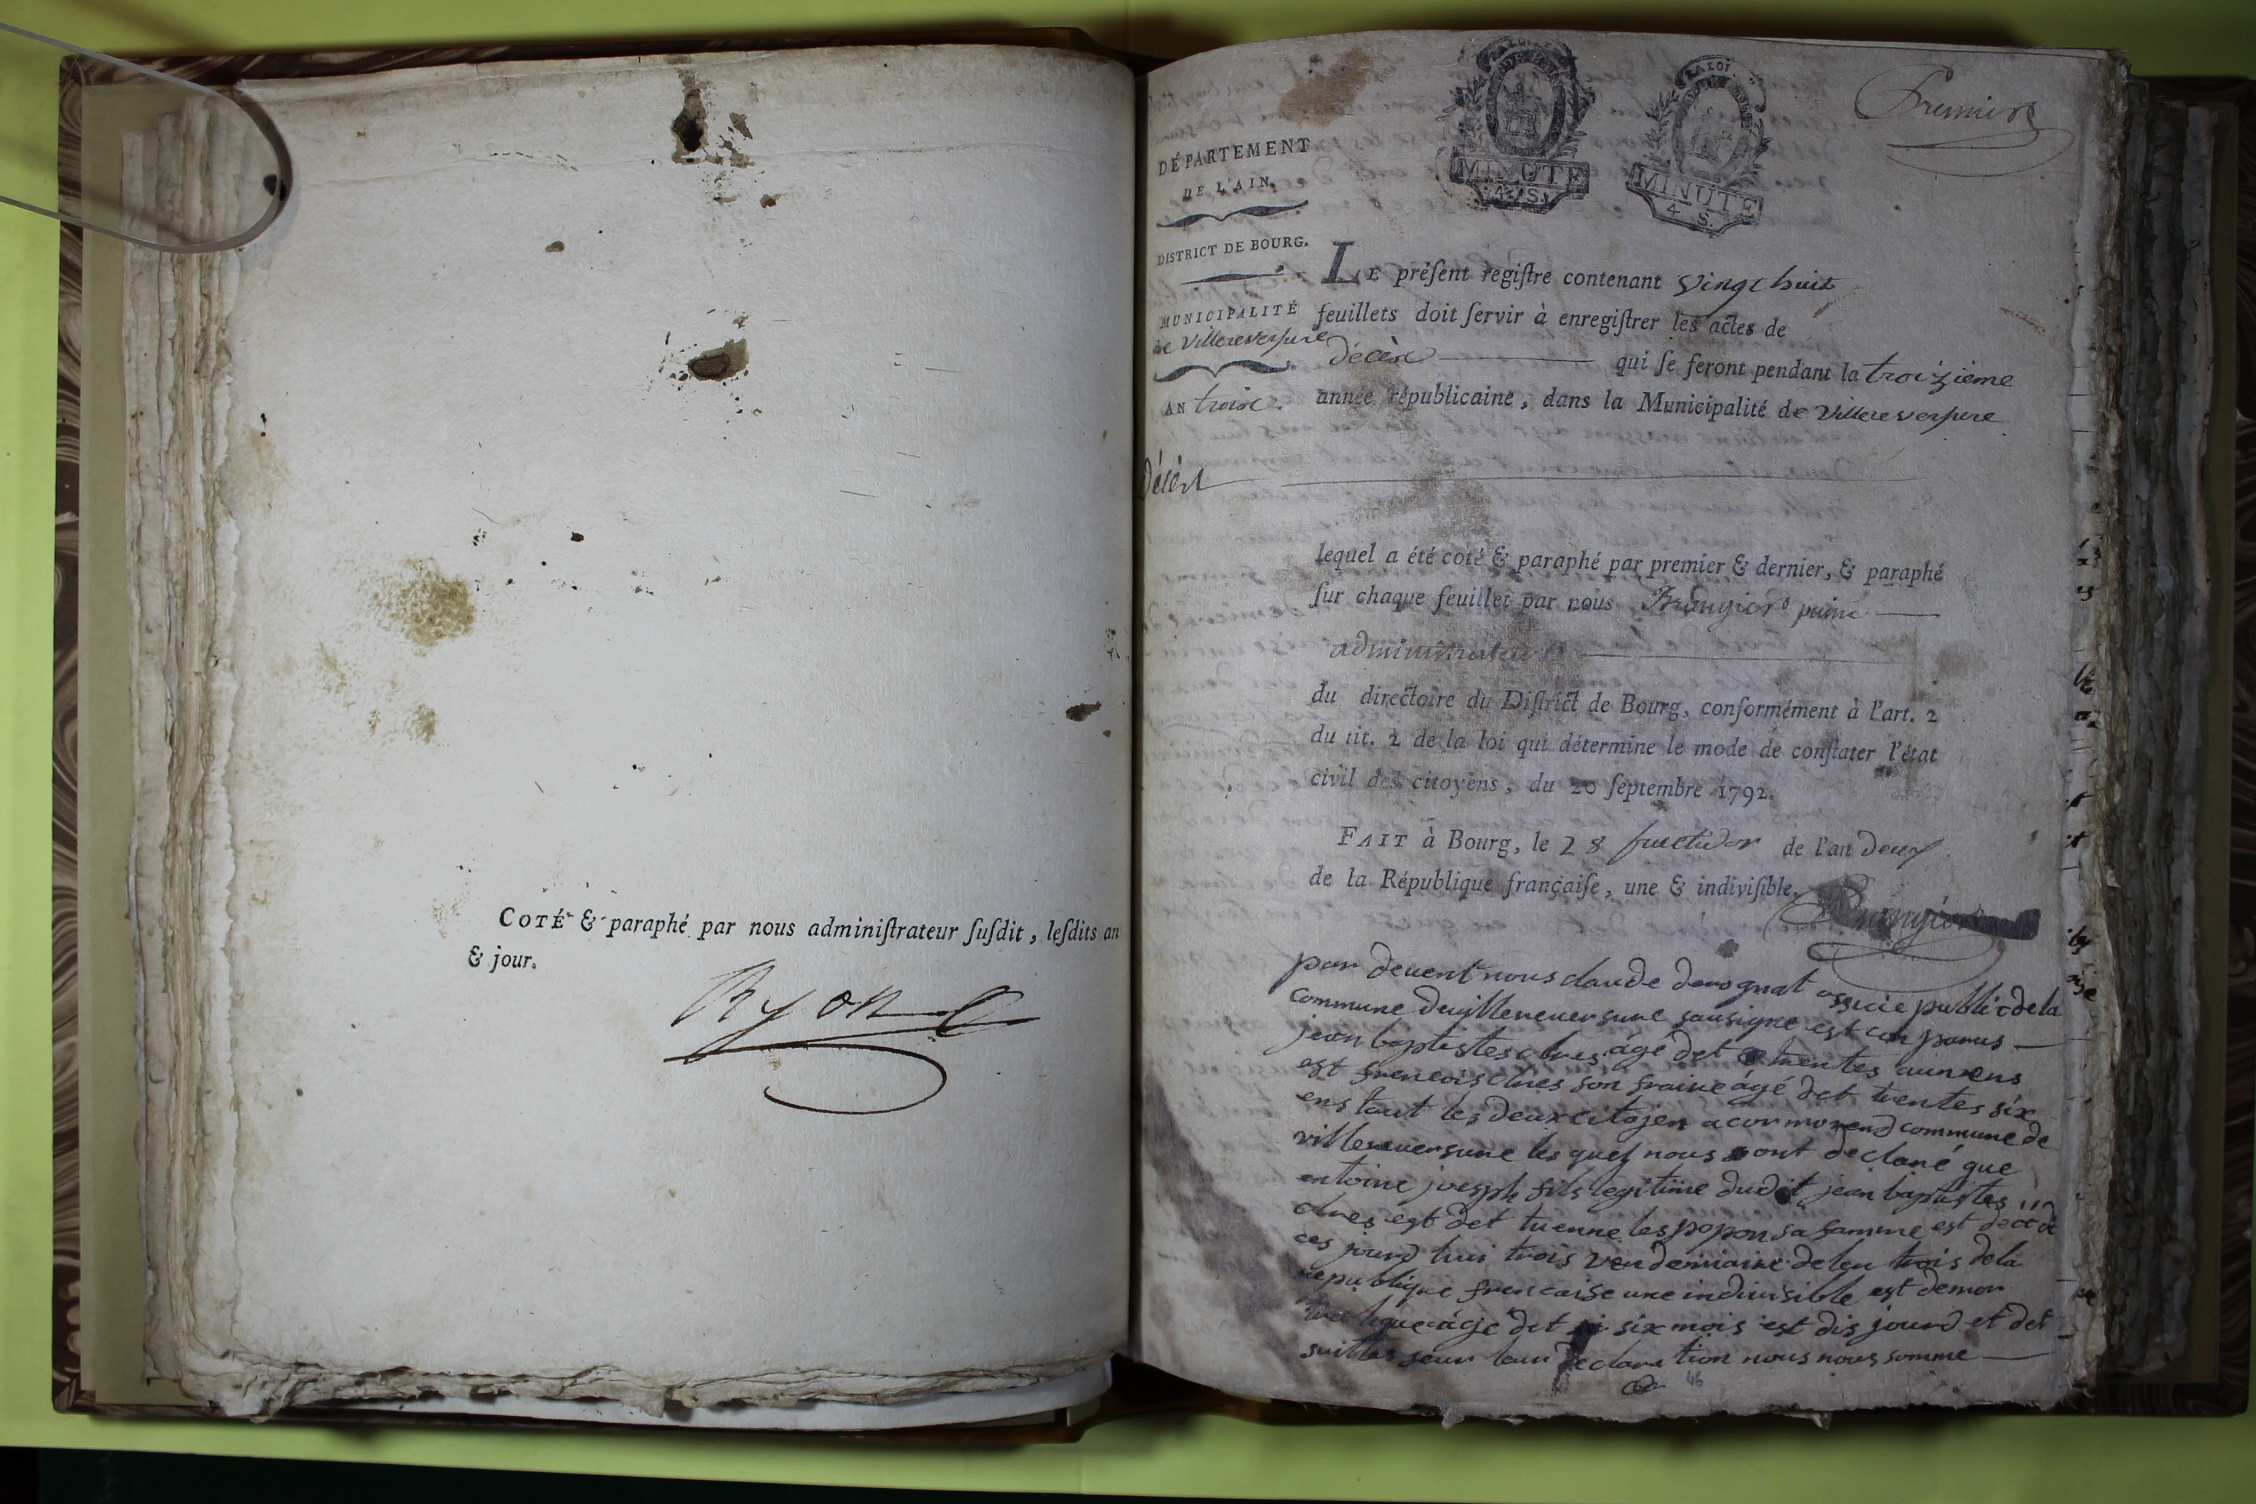 COTÉ & paraphé par nous adminiſtrateur ſuſdit, leſdits an
& jour.
Ryon
Premier
LA LOI
MINUTE
4 S.
LA LOI
MINUTE
4 S.
DÉPARTEMENT
DE L'AIN.
DISTRICT DE BOURG.
MUNICIPALITÉ
de Villereversure
AN trois.
LE préſent regiſtre contenant vingt huit
feuillets doit ſervir à enregiſtrer les actes de
décès qui ſe feront pendant la troizieme
année républicaine, dans la Municipalité de Villereversure
Décès
lequel a été coté & paraphé par premier & dernier, & paraphé
ſur chaque feuillet par nous puiné
administrateur
du directoire du Diſtrict de Bourg, conformément à l'art. 2
du tit. 2 de la loi qui détermine le mode de conſtater l'état
civil des citoyens, du 20 ſeptembre 1792.
FAIT à Bourg, le 28 fructidor de l'an deux
de la République françaiſe, une & indiviſible.
par devent nous claude publicdela
commune devillereuersure sousigne est con parus
jean baptistes age det trentes
est frencois son fraire âgé det trentes six
ens tout les deux citojen a cormorend commune de
villereuersure les quel nous ont declaré que
entoine joesph fils legitime dudit jean baptistes
est det tienne les popon sa famme est
ces jourd hui trois vendemiaire delen trois dela
republique francaise une indivisible est demor
âgé det six mois est dis jourd et det
suittes seur leur declaration nous nous somme
46